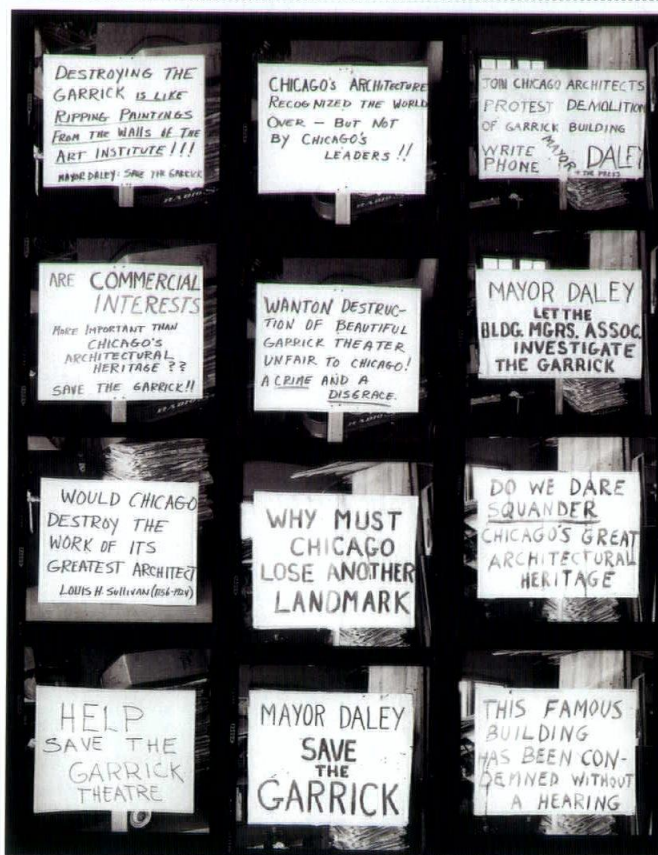 DESTROYING THE
GARRICK IS LIKE
RIPPING PAINTINGS
FROM THE WALLS OF THE
ART INSTITUTE!!!
MAYOR DALEY: SAVE THE GARRICK
CHICAGO'S ARCHITECTURE
RECOGNIZED THE WORLD
OVER - BUT NOT
BY CHICAGO'S
LEADERS!!
JOIN CHICAGO ARCHITECTS
PROTEST DEMOLITION
OF GARRICK BUILDING
WRITE MAYOR DALEY
PHONE + THE PRESS
ARE COMMERCIAL
INTERESTS
MORE IMPORTANT THAN
CHICAGO'S
ARCHITECTURAL
HERITAGE??
SAVE THE GARRICK!!
WANTON DESTRUC-
TION OF BEAUTIFUL
GARRICK THEATER
UNFAIR TO CHICAGO!
A CRIME AND A
DISGRACE.
MAYOR DALEY
LET THE
BLDG. MGRS. ASSOC.
INVESTIGATE
THE GARRICK
WOULD CHICAGO
DESTROY THE
WORK OF ITS
GREATEST ARCHITECT
LOUIS H. SULLIVAN (1856-1924)
WHY MUST
CHICAGO
LOSE ANOTHER
LANDMARK
DO WE DARE
SQUANDER
CHICAGO'S GREAT
ARCHITECTURAL
HERITAGE
HELP
SAVE THE
GARRICK
THEATRE
MAYOR DALEY
SAVE
THE
GARRICK
THIS FAMOUS
BUILDING
HAS BEEN CON-
DEMNED WITHOUT
A HEARING